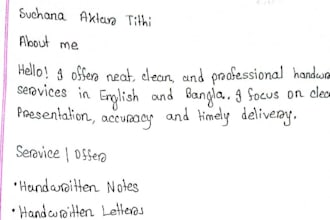 Suchana Aktara Tithi
About me
Hello! I offer neat, clean, and professional
services in English and Bangla. I focus on
Presentation, accuracy and timely delivery.
Service | Offer
• Handwritten Notes
• Handwritten Letters